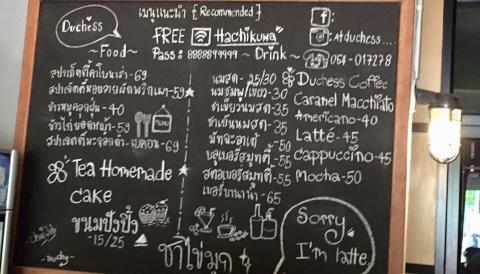 Duchess
เมนูแนะนำ {Recommended}
FREE Hachikuwa
Pass: 8888899999
~Food~
~Drink~
สปาเก็ตตี้คาโบนาร่า-69
สปาเก็ตตี้หอยลายผัดพริกเผา-59
ข้าวหมูคลุกฝุ่น-40
ข้าวไก่ยอดหน้า-59
-เบคอน-69
MENU
Tea Homemade
cake
ขนมปังปิ้ง
-15/25
นมสด-25/30
นมชมพู/เขียว-30
ชาเขียวนมสด-35
ชาเย็นนมสด-35
มัทฉะลาเต้-50
บลูเบอรี่สมูทตี้-55
สตอเบอรี่สมูทตี้-55
เบอร์บานาน่า-65
ชาไข่มุก
f:
: At duchess....
: 064-017278
Duchess Coffee
Caramel Macchiato
Americano-40
Latté-45
cappuccino-45
Mocha-50
Sorry
I'm latte,